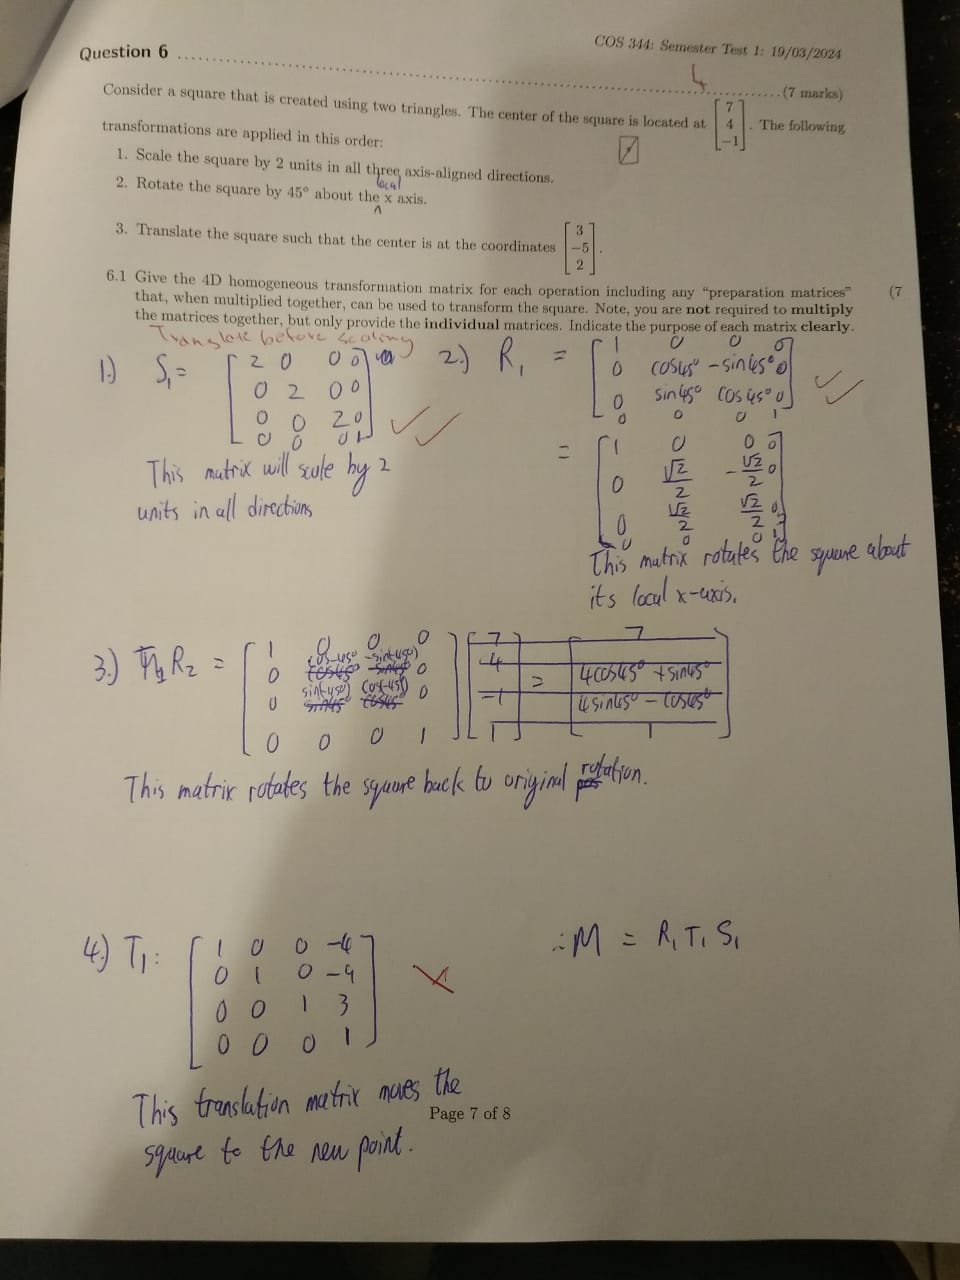 COS 344: Semester Test 1: 19/03/2024
Question 6 ........................................ (7 marks)
4
Consider a square that is created using two triangles. The center of the square is located at [7 4 −1]. The following
transformations are applied in this order:
1. Scale the square by 2 units in all three axis-aligned directions.
local
2. Rotate the square by 45° about the ^ x axis.
3. Translate the square such that the center is at the coordinates [3 −5 2].
6.1 Give the 4D homogeneous transformation matrix for each operation including any “preparation matrices” (7
that, when multiplied together, can be used to transform the square. Note, you are not required to multiply
the matrices together, but only provide the individual matrices. Indicate the purpose of each matrix clearly.
Translate before scaling
1.) S₁ =
2 0 0 0
0 2 0 0
0 0 2 0
0 0 0 1
This matrix will scale by 2
units in all directions
2.) R₁ =
1 0 0 0
0 cos45° -sin45° 0
0 sin45° cos45° 0
0 0 0 1
=
1 0 0 0
0 √2/2 -√2/2 0
0 √2/2 √2/2 0
0 0 0 1
This matrix rotates the square about
its local x-axis.
3.) R₂ =
1 0 0 0
0 cos-45° -sin(-45°) 0
0 sin(-45°) cos(-45°) 0
0 0 0 1
7 4 -1 1
=
7
4cos45° + sin45°
4sin45° - cos45°
1
This matrix rotates the square back to original rotation.
4.) T₁:
1 0 0 -4
0 1 0 -9
0 0 1 3
0 0 0 1
∴ M = R₁ T₁ S₁
This translation matrix moves the
square to the new point.
Page 7 of 8